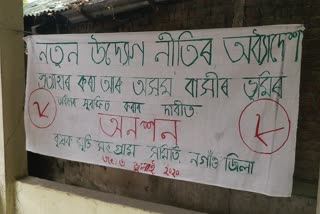 নতুন উদ্যোগ নীতিৰ অধ্যাদেশ
প্ৰত্যাহাৰ কৰা আৰু অসম বাসীৰ ভূমিৰ
অধিকাৰ সুৰক্ষিত কৰাৰ দাবীত
অনশন
কৃষক মুক্তি সংগ্ৰাম সমিতি নগাঁও জিলা
২০২০